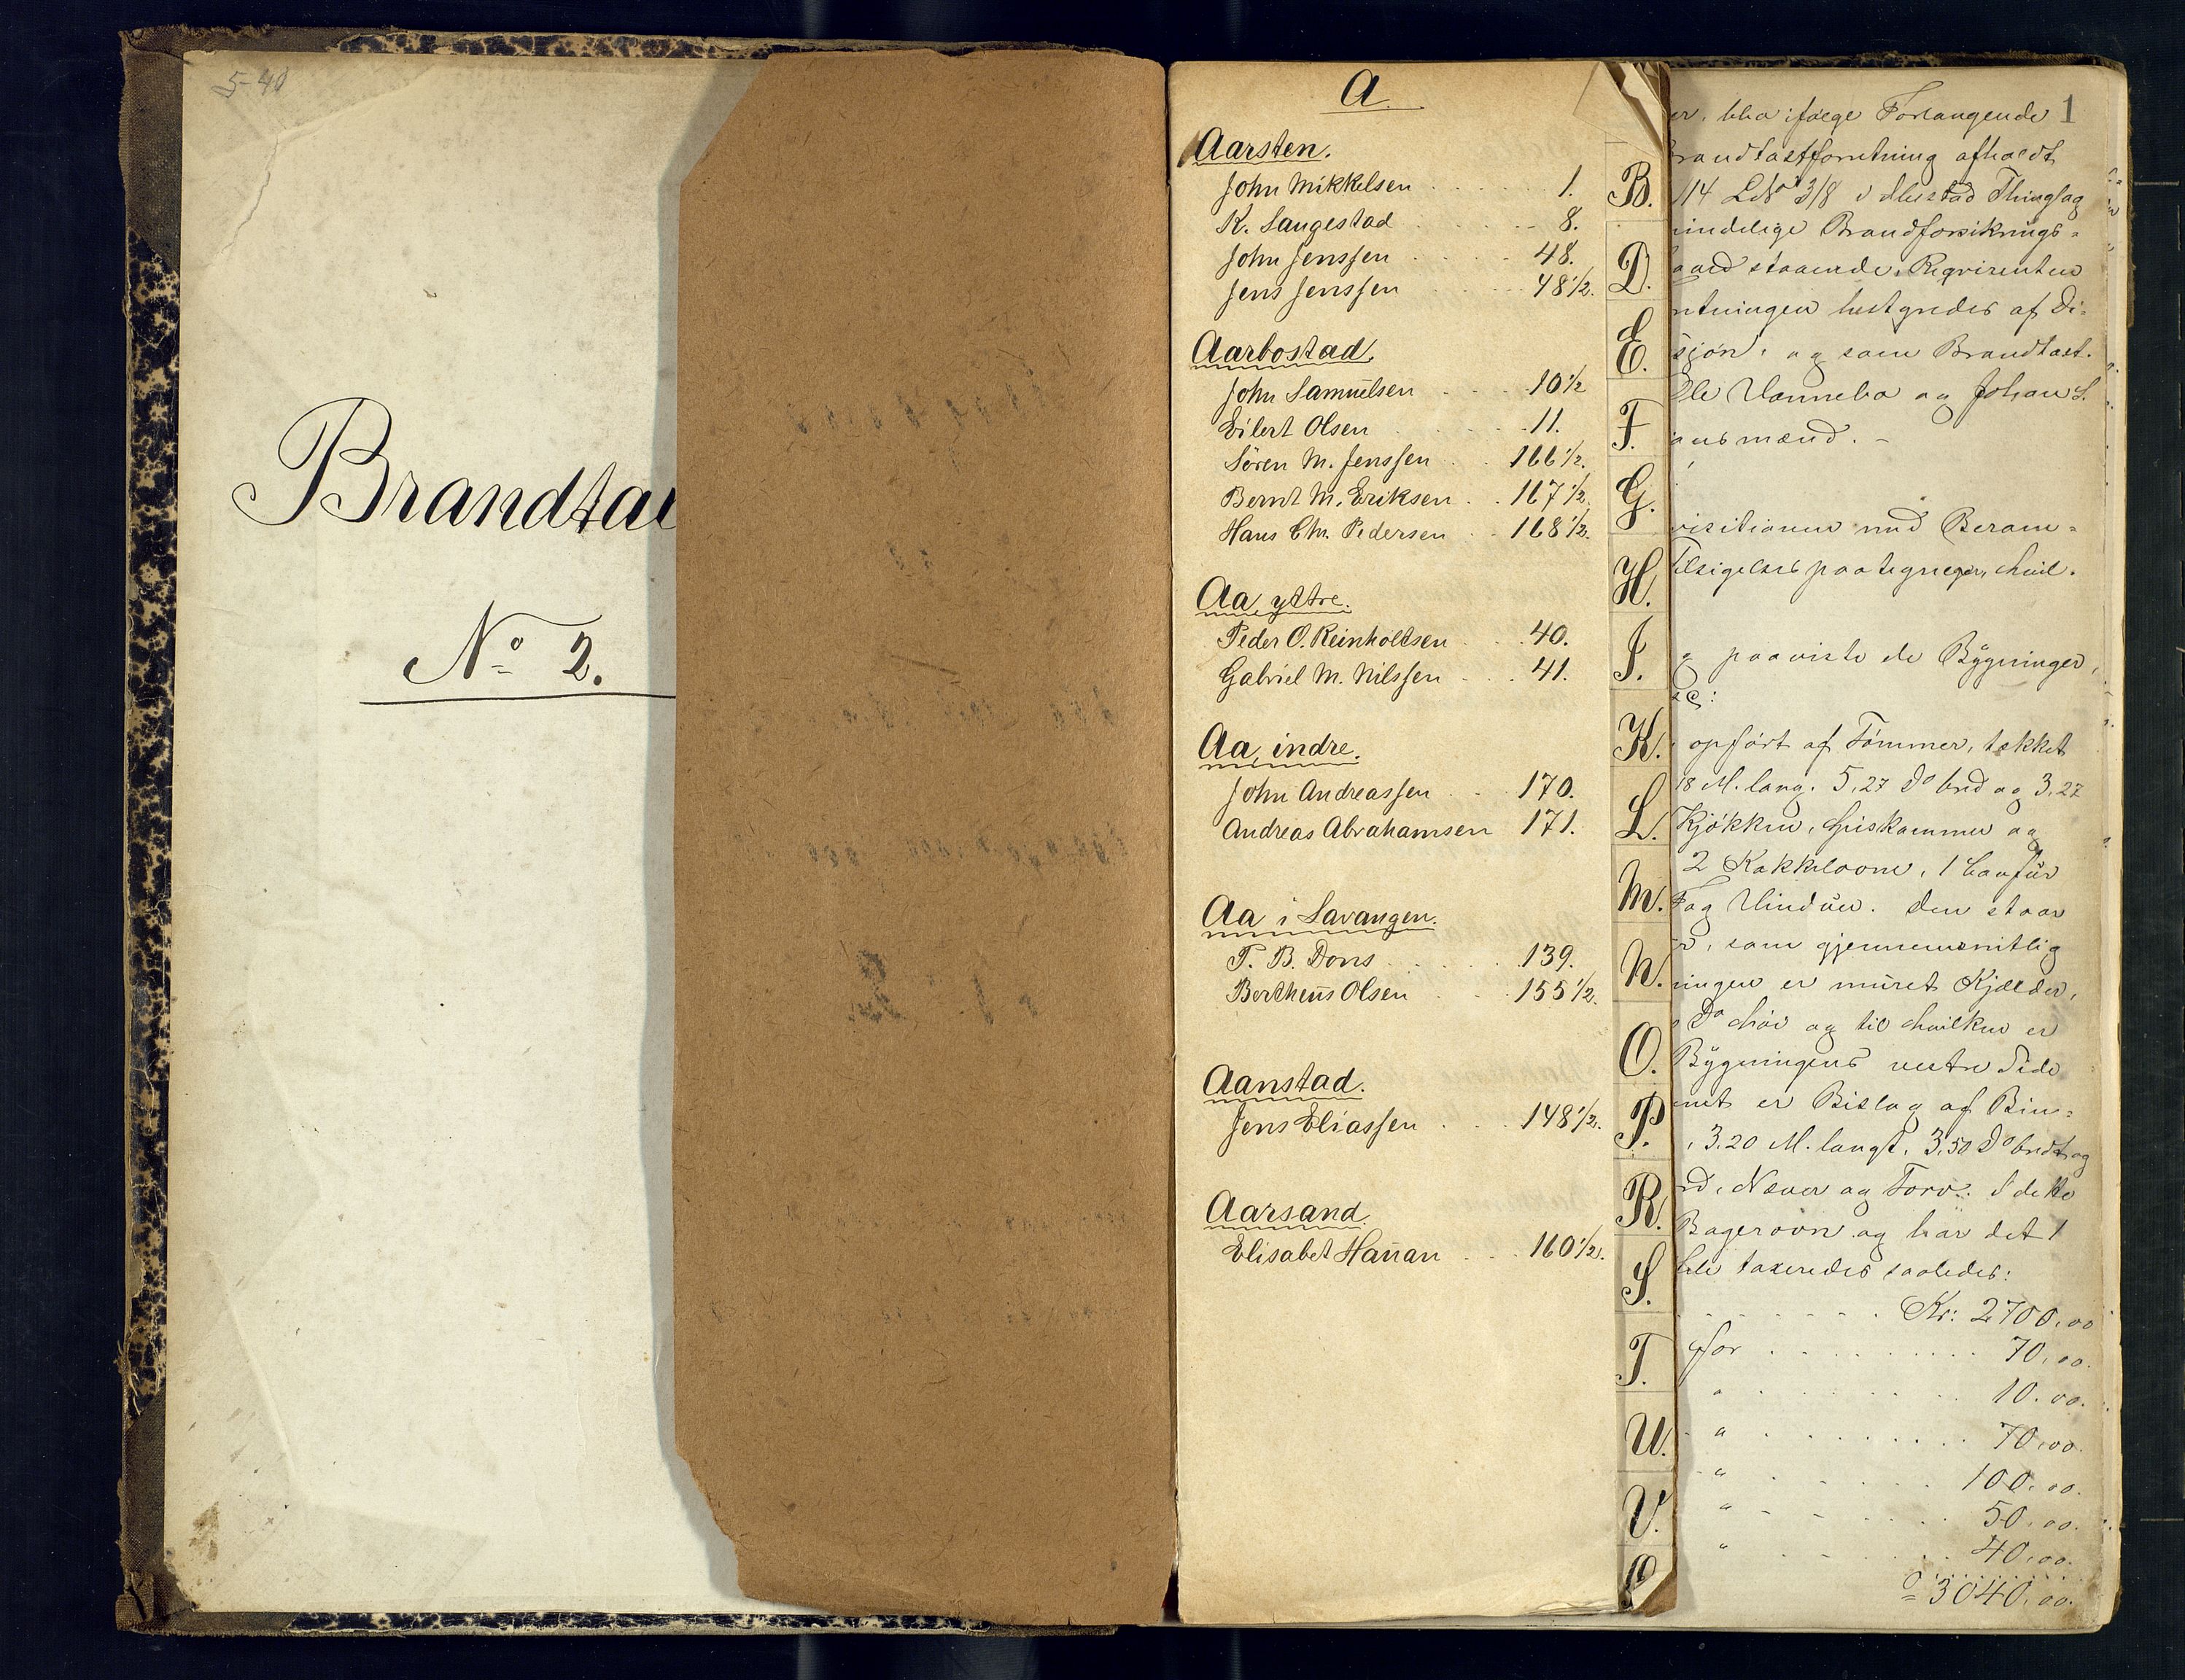 5-40
Brandta
No 2.
A.
Aarsten.
John Mikkelsen 1.
K. Saugestad 8.
John Jenssen 48.
Jens Jenssen 48 1/2.
Aarbostad.
John Samuelsen 10 1/2
Eilert Olsen 11.
Sören M. Jenssen 166 1/2.
Bernt M. Eriksen 167 1/2.
Hans Chr. Pedersen 168 1/2.
Aa, ydtre.
Peder O. Reinholtsen 40.
Gabriel M. Nilssen 41.
Aa, indre.
John Andreassen 170.
Andreas Abrahamsen 171.
Aa i Savangen.
P. B. Dons 139.
Bertheus Olsen 155 1/2.
Aanstad.
Jens Eliassen 148 1/2.
Aarsand.
Elisabet Hanan 160 1/2.
B.
D.
E.
F.
G.
H.
I.
K.
L.
M.
N.
O.
P.
R.
S.
T.
U.
V.
Ø
1
ifølge Forlangende
randtaxtforretning afholdt
114 LNo 3/8 i Thinglag
mindelige Brandforsikrings=
gaard staaende, Reqvirenten
retningen bestyredes af Di=
og som Brandtaxt.
Ole Vannebo og Johan S.
ansmænd. -
visitionen med Beram=
Tilsigelses paategninger, hvil=
g paaviste de Bygninger,
opfört af Tömmer, tækket
18 M. lang. 5,27 Do bred og 3,27
Kjökken, Spiskammer og
2 Kakkelovne, 1 Comfur
Fag Vinduer. Den staar
som gjennemsnitlig
ningen er muret Kjælder,
Do høi og til hvilken er
Bygningens vestre Side
met er Bislag af Bin=
3.20 M. langt. 3,50 Do bredt og
rd, Næver og Torv. I dette
Bagerovn og har det 1
taxeredes saaledes:
Kr: 2700,00
for 70,00.
" 10.00.
" 70,00.
" 100,00.
" 50,00.
" 40,00.
= 3040,00.